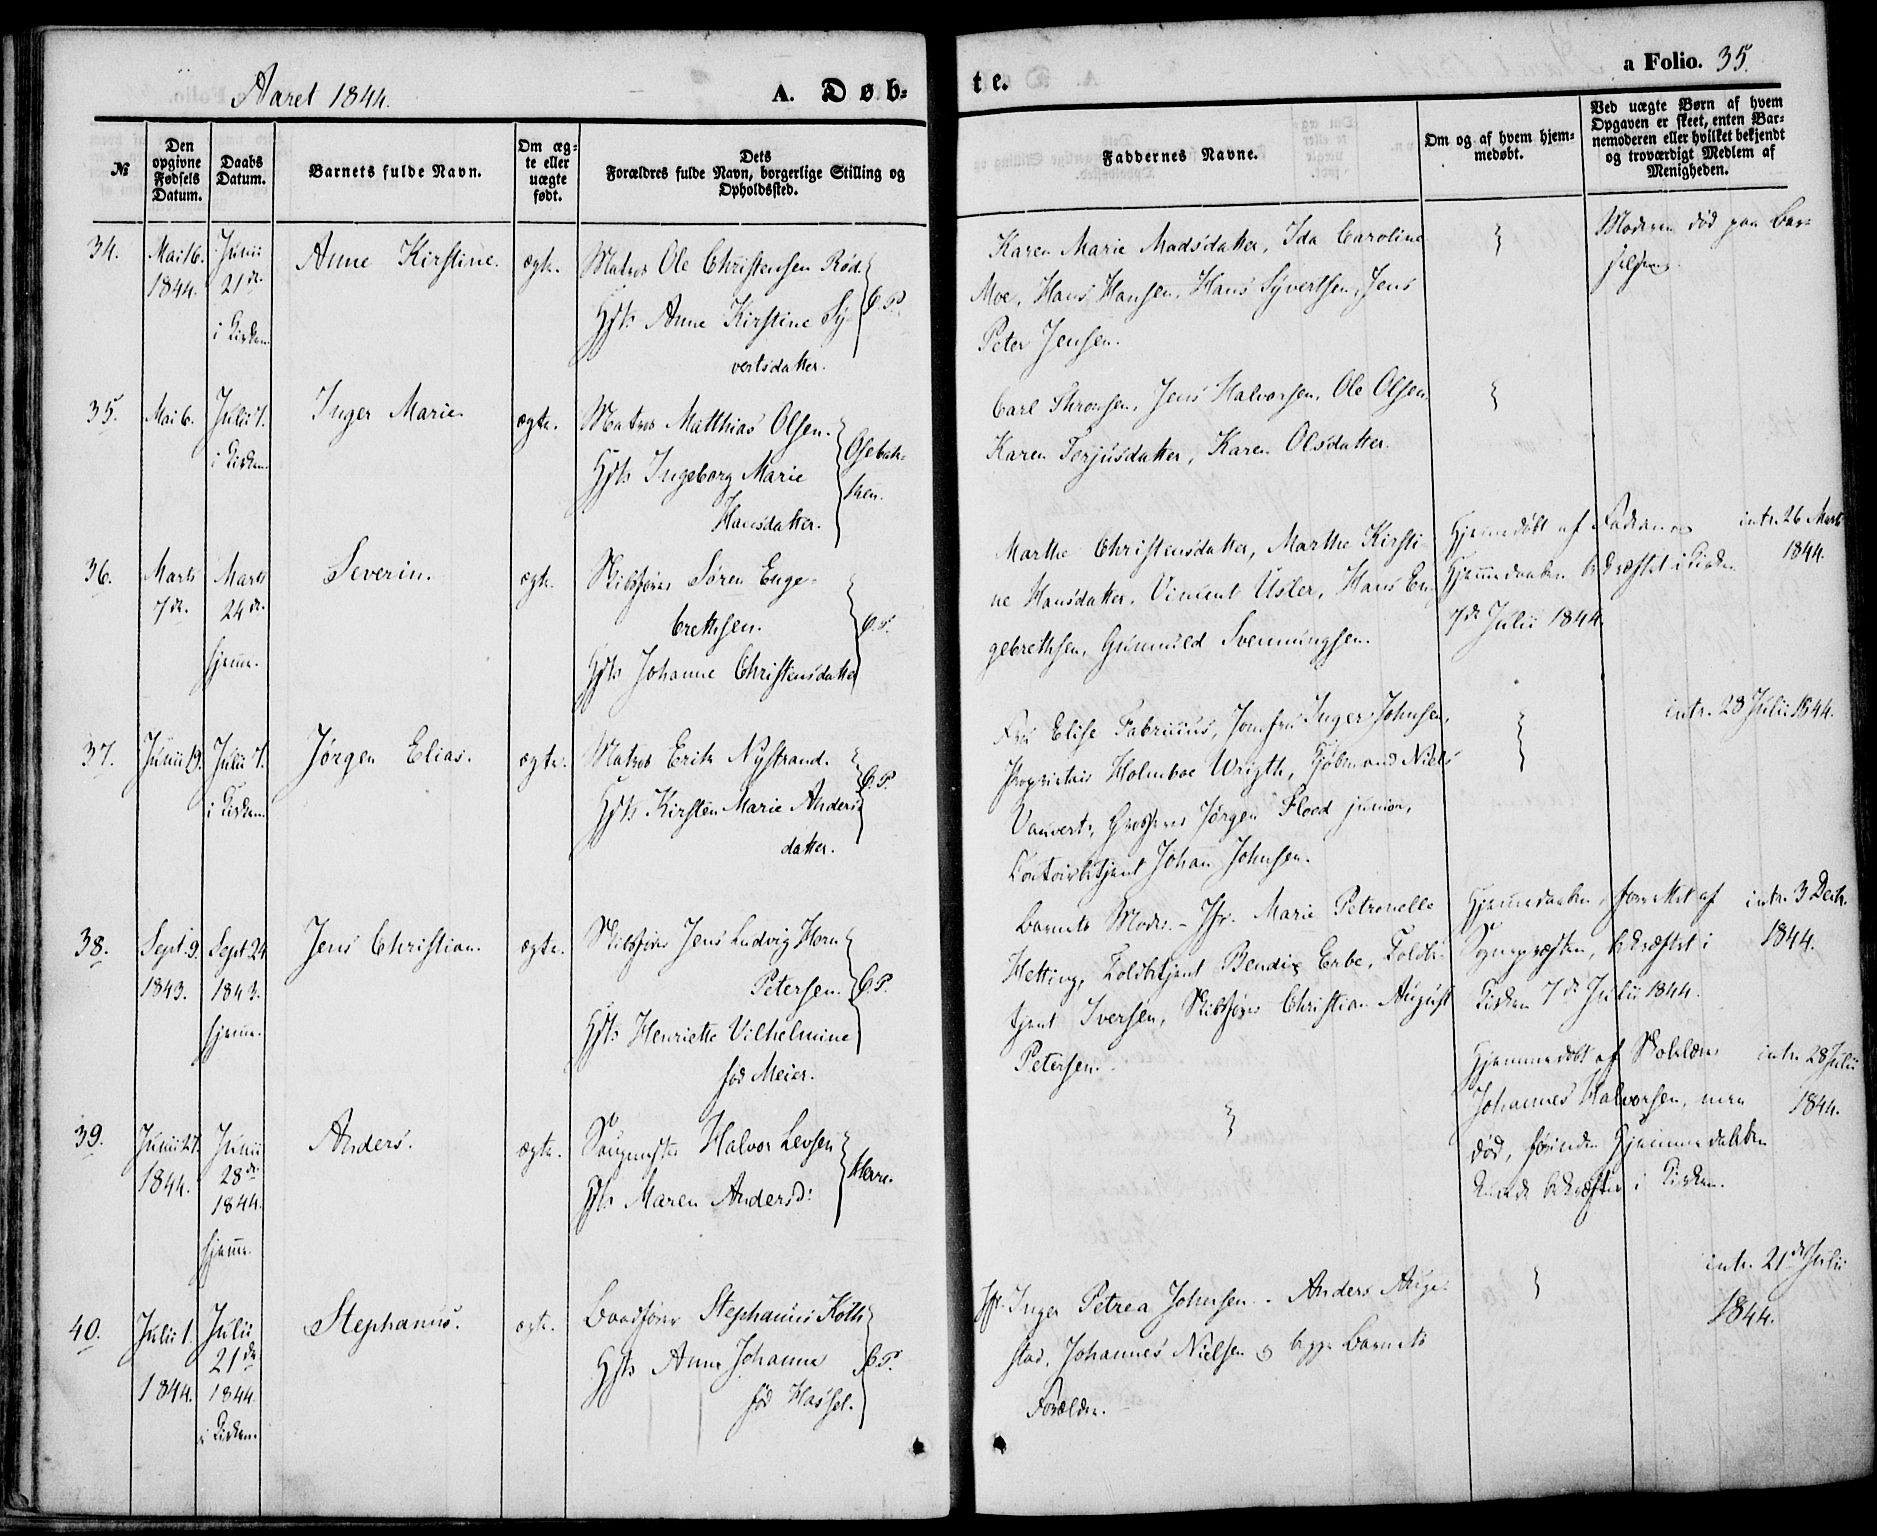 Aaret 1844.
A. Døb-
te.
a Folio. 35.
№
Den opgivne Fødsels Datum.
Daabs Datum.
Barnets fulde Navn.
Om ægte eller uægte født.
Dets Forældres fulde Navn, borgerlige Stilling og Opholdssted.
Faddernes Navne.
Om og af hvem hjemmedøbt.
Ved uægte Børn af hvem Opgaven er skeet, enten Barnemoderen eller hvilket bekjendt og troværdigt Medlem af Menigheden.
34.
Mai 16.
1844.
Junii
21de
i Kirken
Anne Kirstine.
ægte.
Matros Ole Christensen Rød.
Hst Anne Kirstine Sy-
vertsdatter.
Karen Marie Madsdatter, Ida Caroline
Moe, Hans Hansen, Hans Syvertsen, Jens
Peter Jensen.
Moderen død paa Bar-
selseng.
35.
Mai 6.
Julii 7.
i Kirken
Inger Marie
ægte.
Matros Matthias Olsen.
Hst Ingeborg Marie
Hansdatter.
Osebak-
ken.
Carl Thronsen, Jens Halvorsen, Ole Olsen,
Karen Torjusdatter, Karen Olsdatter.
36.
Marts
7de
Marts
24de
hjemme.
Severin.
ægte.
Skibsfører Søren Enge-
brethsen.
Hst Johanne Christensdatter
Marthe Christensdatter, Marthe Kirsti-
ne Hansdatter, Vincent Usler, Hans En-
gebrethsen, Gunnuld Svenningsen.
Hjemmedøbt af
Hjemmedaaben bekræftet i Kirken
7de Julii 1844.
intr. 26 Marts
1844.
37.
Junii 19.
Julii 7.
i Kirken
Jørgen Elias.
ægte.
Matros Erik Nystrand.
Hst Kirsten Marie Anders-
datter.
Fru Elise Fabricius, Jomfru Inger Johnsen,
Proprietair Holmboe Wrigth, Kjøbmand Niels
Vauvert, Grosserer Jørgen Floed junior,
Contoirbetjent Johan Johnsen.
intr. 28 Julii 1844.
38.
Sept. 9.
1843.
Sept. 24
1843.
hjemme.
Jens Christian.
ægte.
Skibsfører Jens Ludvig Horn
Petersen.
Hst Henriette Vilhelmine
fød Meier.
Barnets Moder. - Jfr. Marie Petronelle
Hetting, Toldbetjent Bendix Erbe, Toldbe-
tjent Iversen, Skibsfører Christian August
Petersen.
Hjemmedaaben, forrettet af
Sognepræsten, bekræftet i
Kirken 7de Julii 1844.
intr. 3 Decbr.
1844.
39.
Junii 27.
1844.
Junii
28de
1844.
hjemme.
Anders.
ægte.
Saugmester Halvor Levsen
Hst Maren Andersd:
Herre.
Hjemmedøbt af Skolelærer
Johannes Halvorsen, men
død, førinden Hjemmedaaben
kunde bekræftes i Kirken.
intr. 28 Julii
1844.
40.
Julii 1.
1844.
Julii
21de
1844.
i Kirken.
Stephanus.
ægte.
Baadfører Stephanus Koth
Hst Anne Johanne
fød Hassel.
Jfr. Inger Petrea Johnsen. - Anders Auge-
stad, Johannes Nielsen og begge Barnets
Forældre.
intr. 21de Julii
1844.